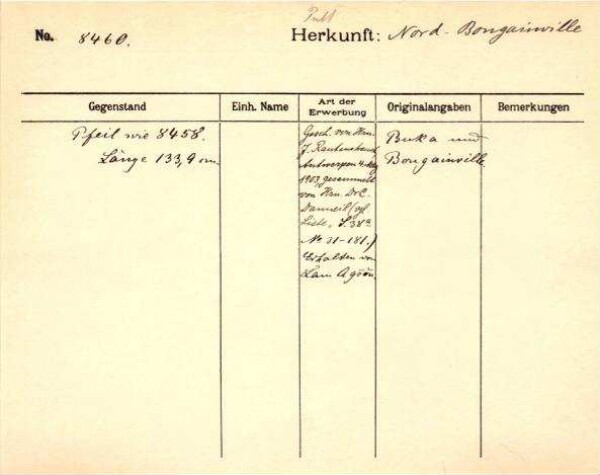 Publ
No. 8460.
Herkunft: Nord-Bougainville
Gegenstand
Einh. Name
Art der Erwerbung
Originalangaben
Bemerkungen
Pfeil wie 8458.
Länge 133,9 cm.
Gesch. von Hrn.
J. Rautenstrauch
Antwerpen
1903 gesammelt
von Hrn. Dr C.
Danneil (vgl
Liste, S. 38a
No 31-181.)
Erhalten von
Buka und
Bougainville